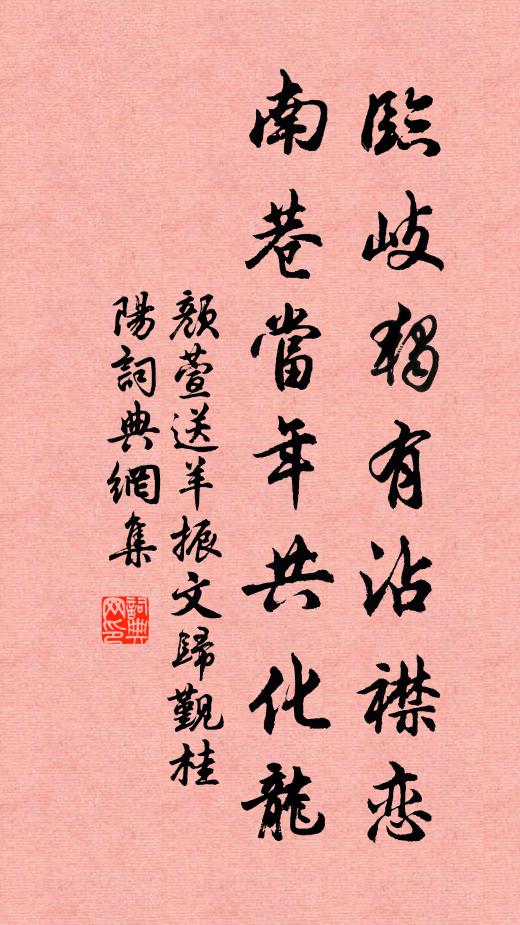 臨歧獨有沾襟恋
南巷當年共化龍
顔萱送羊振文歸覲桂
陽詞典網集
詞典
网印